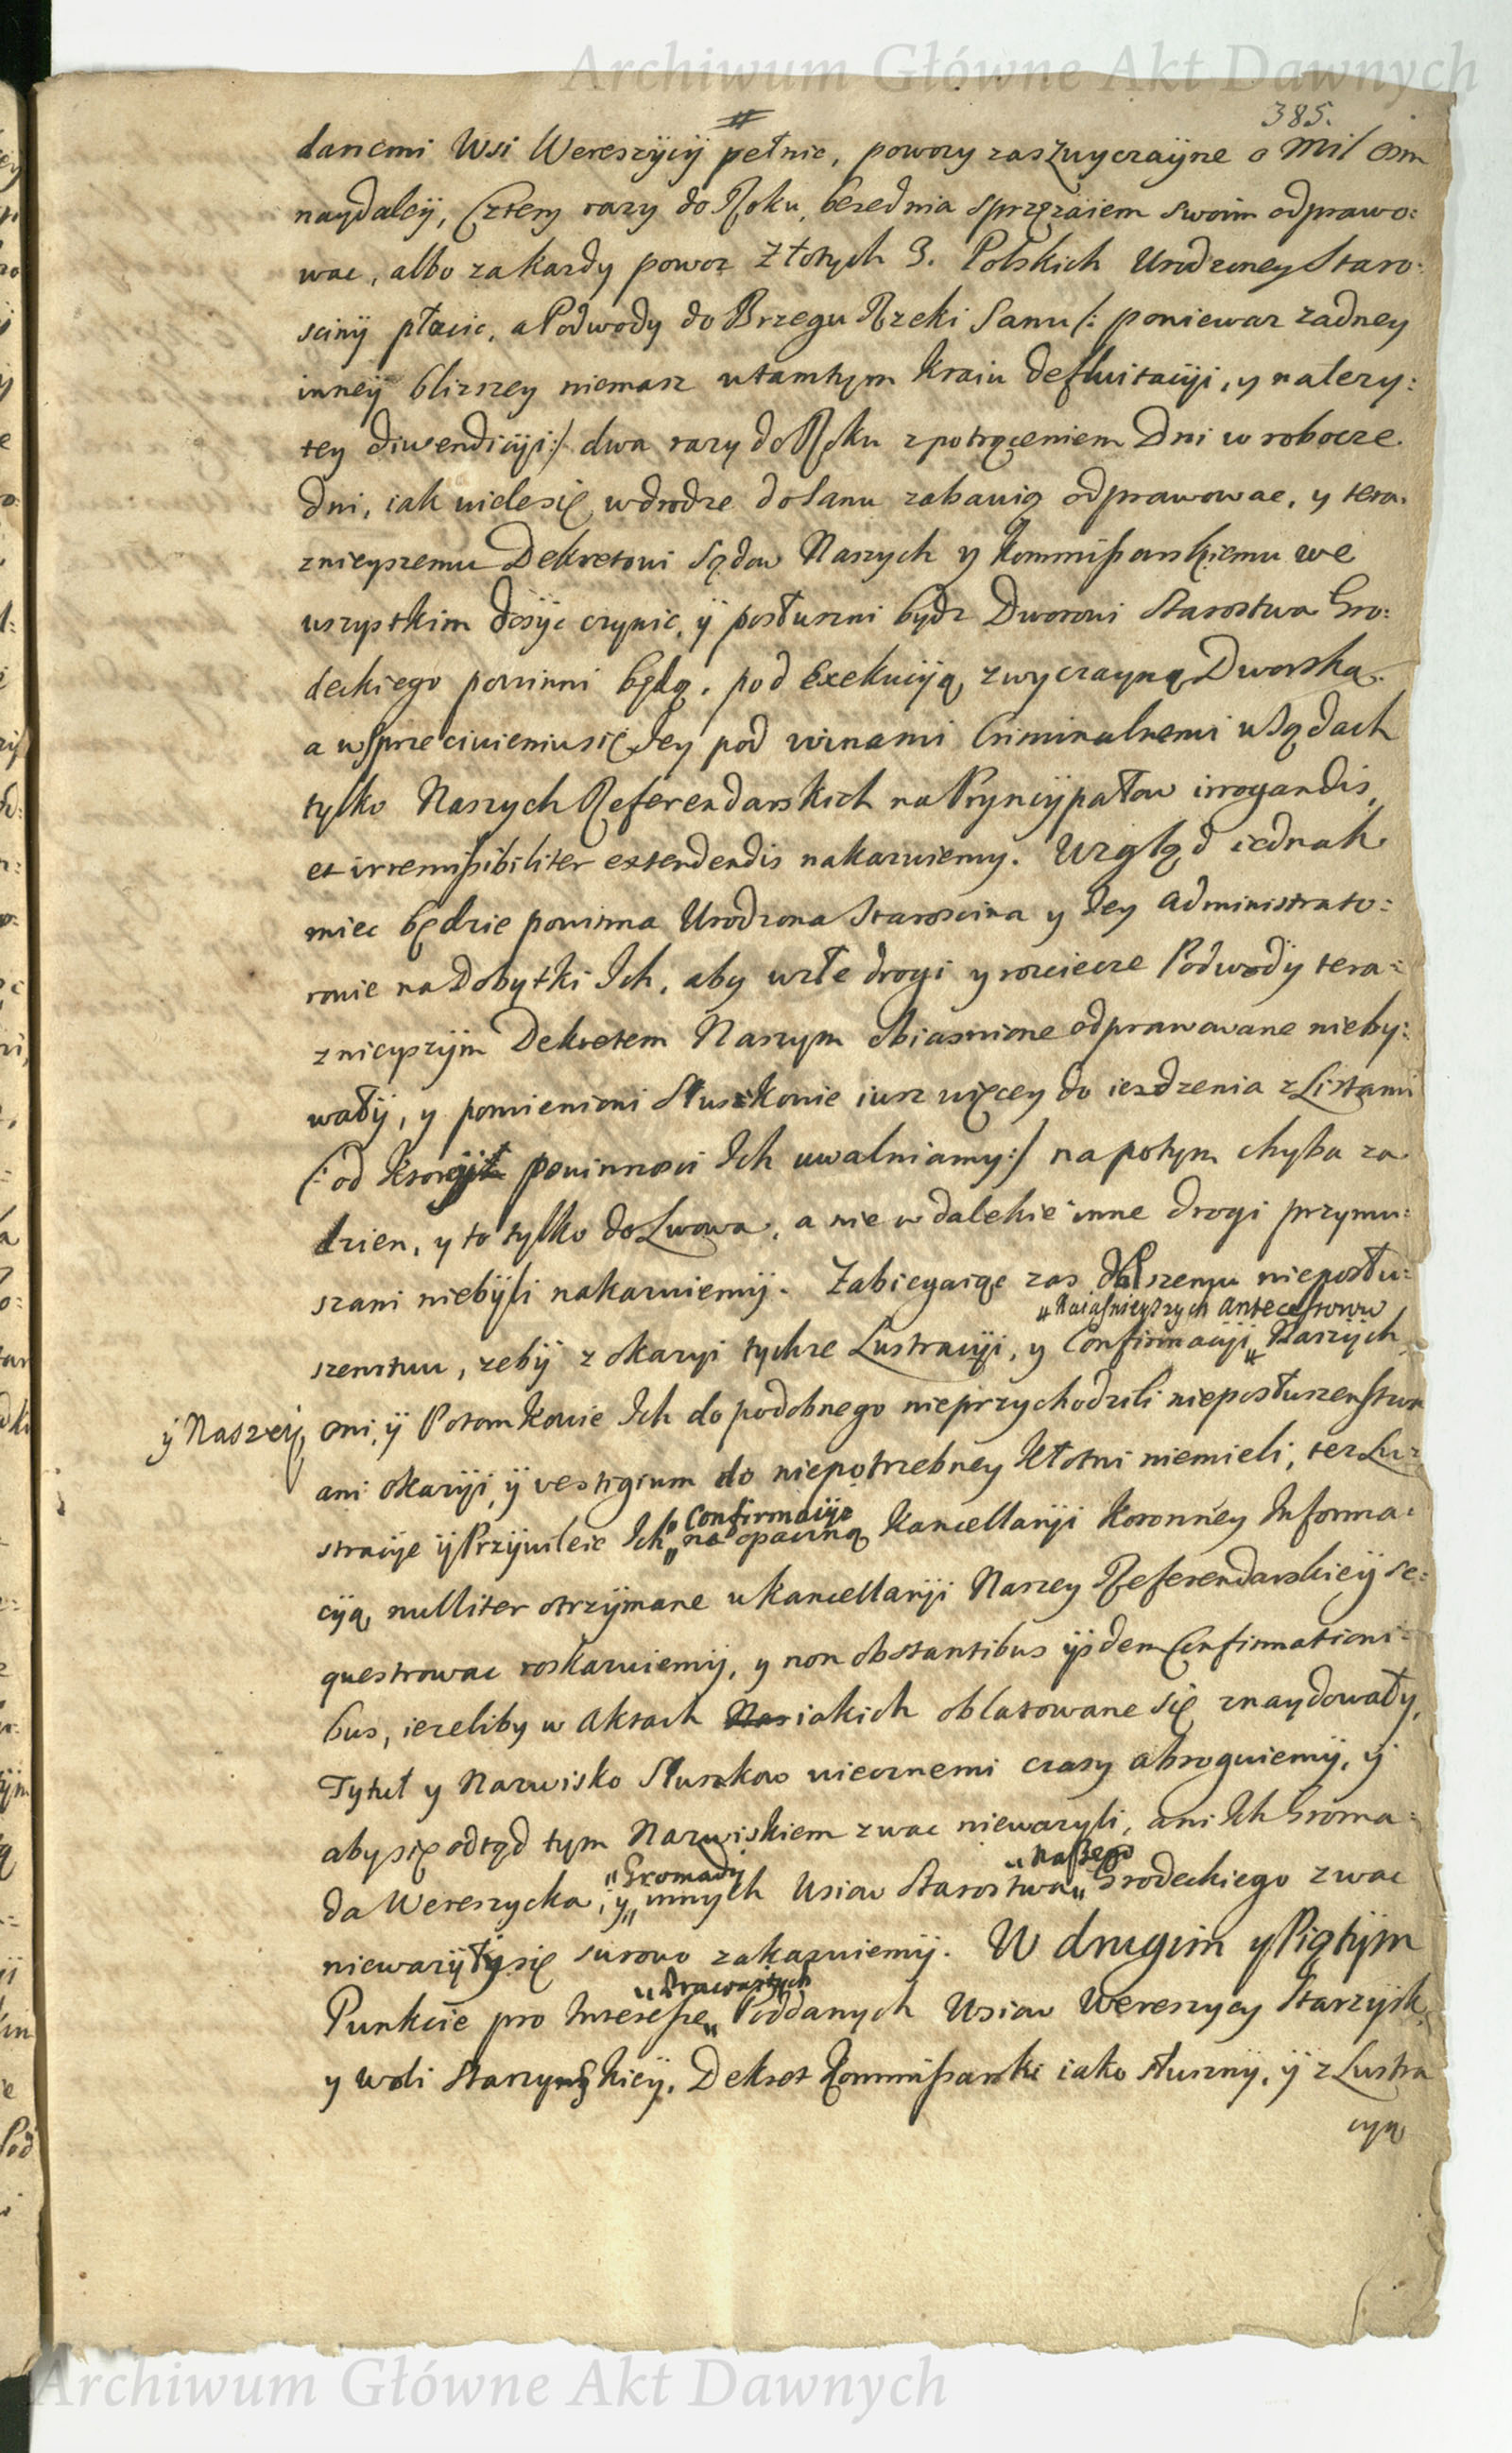 Archiwum Główne Akt Dawnych
385.
#
dancmi Wsi Wereszycÿ pełnic, powozy zas zwyczaÿne o Mil osm
naydaleÿ, Cztery razy do Roku, bezednia sprzęzaiem swoim odprawo:
wac, albo za kazdy powoz Złotych 3. Polskich Urodzoney Staro:
scinÿ płacic, a Podwody do Brzegu Rzeki Sanu /: poniewaz zadney
inneÿ blizszey niemasz w tamtym Kraiu defluitacÿi, y nalezy:
tey diwendicÿi:/ dwa razy do Roku z potrąceniem Dni w robocze
dni, iak wiele się w drodze do Sanu zabawią odprawowac, y tera.
znieyszemu Dekretowi Sądow Naszych y Kommissarskiemu we
wszystkim dosÿc czynic, ÿ posłuszni bydz Dworowi Starostwa Gro:
deckiego powinni będą, pod Exekucÿą zwyczayną Dworską.
a w sprzeciwieniu się Jey pod winami Criminalnemi w Sądach
tylko Naszych Referendarskich na Pryncÿpałow irrogandis,
et irremissibiliter extendendis nakazuiemy. Wzgląd iednak
miec będzie powinna Urodzona Staroscina y Jey administrato:
rowie na Dobytki Ich, aby w złe drogi y rozciecze Podwody tera:
znieyszÿm Dekretem Naszym obiasnione odprawowane nieby:
wałÿ, y pomienieni Słuszkowie iusz więcey do iezdzenia z Listami
/: od ktorey powinnosci Ich uwalniamy:/ napotym chyba za
dzien, y to tylko do Lwowa, a nie w dalekie inne drogi przymu:
szani niebÿli nakazuiemÿ. Zabiegaiąc zas dalszemu nieposłu:
„Naiasnieyszych Antecessorow
szenstwu, zebÿ z okazyi tychze Lustracÿi, y Confirmacÿi „Naszÿch
ÿ Naszeÿ oni, ÿ Potomkowie Ich do podobnego nieprzychodzili nieposłuszenstwa
ani okazÿi, ÿ vestigium do niepotrzebney kłotni niemieli, tez Lu:
„Confirmacÿe
stracÿe ÿ Przÿwileie Ich „na opaczną Kancellarÿi Koronney Informa:
cÿą nulliter otrzÿmane w Kancellarÿi Naszey Referendarskieÿ se:
questrowac roskazuiemÿ, y non obstantibus ÿsdem Confirmationi:
bus, iezeliby w Aktach iakich oblatowane się znaydowały,
Tytuł y Nazwisko Słuszkow wiecznemi czasy abroguiemÿ, ÿ
aby się odtąd tym Nazwiskiem zwac niewazyli, ani Ich Groma:
„Gromadÿ „Naszego
da Wereszycka, y „innych Wsiow Starostwa „Grodeckiego zwac
niewazÿłÿ się surowo zakazuiemÿ. W drugim y Piątÿm
„Prawuiących
Punkcie pro Interesse „Poddanych Wsiow Wereszycy Starzÿsk
y Woli Starzynskieÿ, Dekret Kommissarski iako słusznÿ, ÿ z Lustra
cyą
Archiwum Główne Akt Dawnych